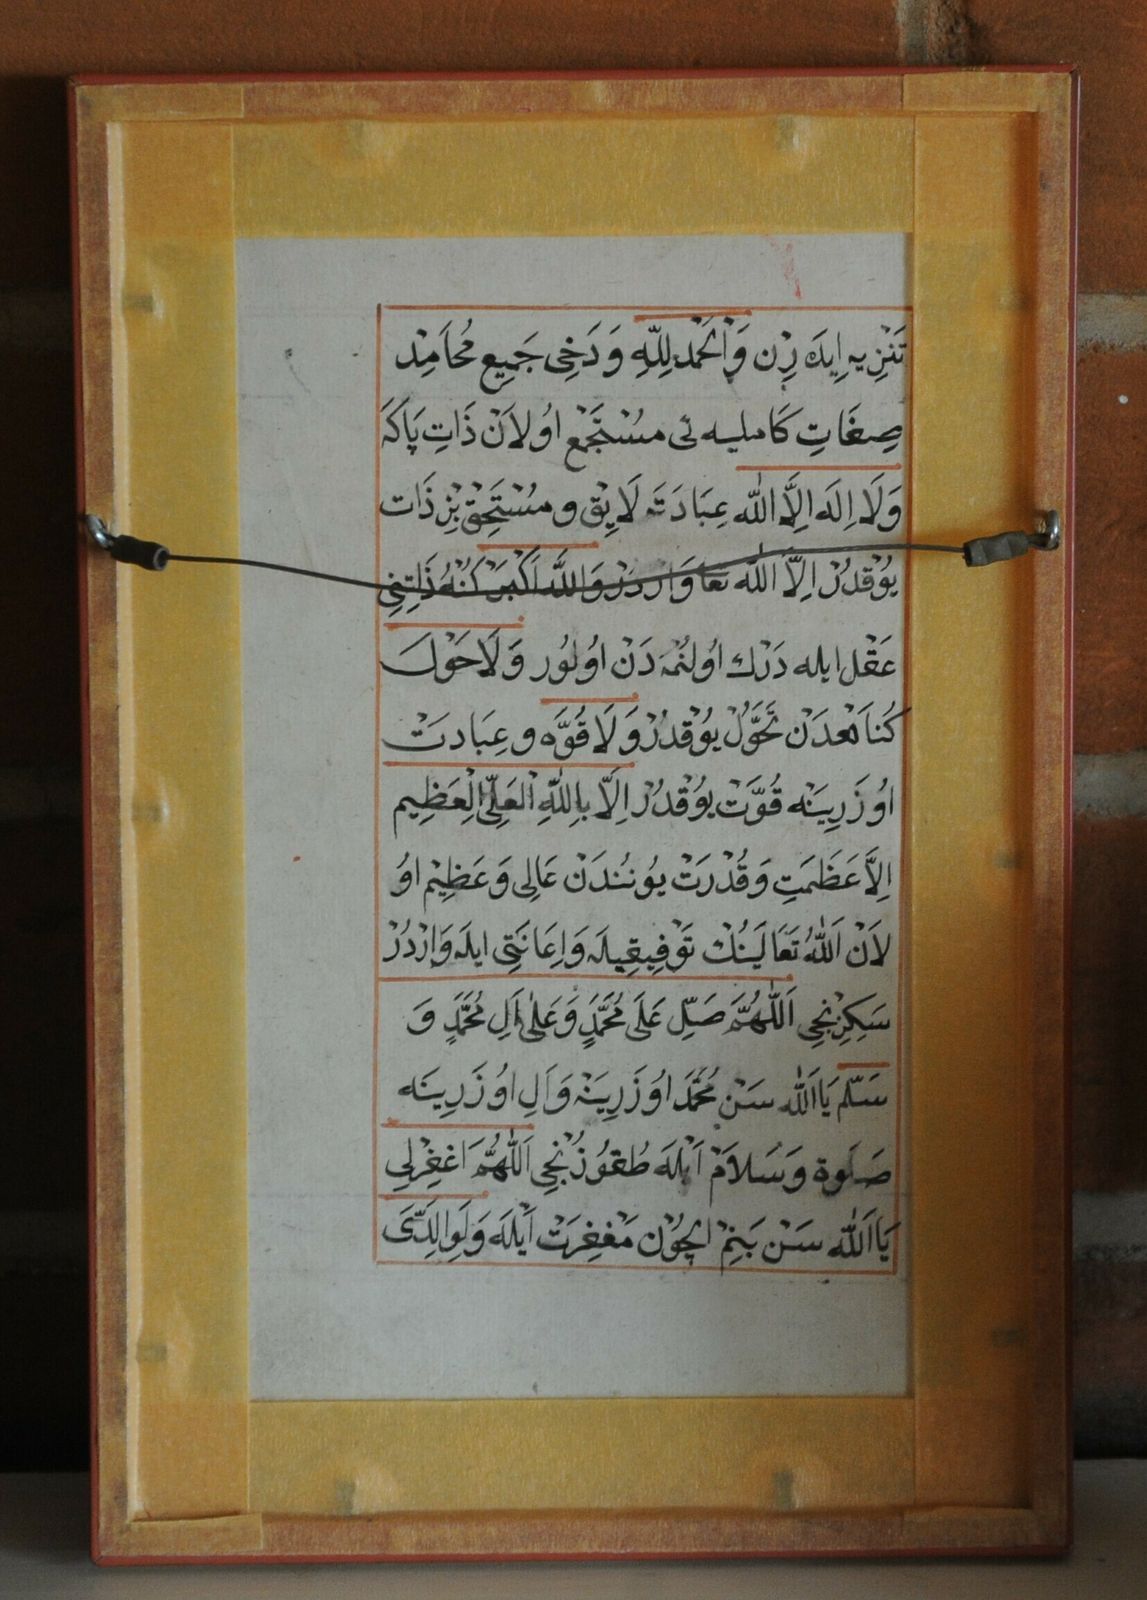 تَنْزِيه اِيدَه رِنْ وَالْحَمْدُ لِلّٰهِ وَدَخِى جَمِيعِ مَحَامِدْ
صِفَاتِ كَامليه ئى مُسْتَجْمِعْ اُولَانْ ذَاتِ پَاكَه
وَلَا اِلَهَ اِلَّا اللّٰه عِبَادَتَه لَايِقْ و مُسْتَحِقْ بِرْ ذَات
يُوْقْدُرْ اِلَّا اللّٰه تعا وَارْدُرْ وَاللّٰهُ اَكْبَرْ كُنْهُ ذَاتِنِى
عَقْل ايله دَرْك اُولُنْمَه دَنْ اُولُور وَلَا حَوْلَ
كُنَاهْدَنْ تَحَوُّلْ يُوْقْدُرْ وَلَا قُوَّه و عِبَادَتْ
اُوزَرِينَه قُوَّتْ يُوْقْدُرْ اِلَّا بِاللّٰهِ الْعَلِىِّ الْعَظِيمِ
اِلَّا عَظَمَتِ وَقُدْرَتْ يُونُنْدَنْ عَالِى وَعَظِيمْ اُو
لَانْ اَللّٰهُ تَعَالَينُكْ تَوْفِيقِيلَه وَاِعَانَتِى ايلَه وَارْدُرْ
سَكِزِنْجِى اَللّٰهُمَّ صَلِّ عَلَى مُحَمَّدٍ وَعَلَى اٰلِ مُحَمَّدٍ وَ
سَلِّمْ يَا اَللّٰه سَنْ مُحَمَّدْ اُوزَرِينَه وَاٰلِ اُوزَرِينَه
صَلَوة وَسَلَامْ اَيْلَه طُقُوزُنْجِى اَللّٰهُمَّ اغْفِرْلِى
يَا اَللّٰه سَنْ بَنِمْ اِچُونْ مَغْفِرَتْ اَيْلَه وَلِوَالِدَىَّ